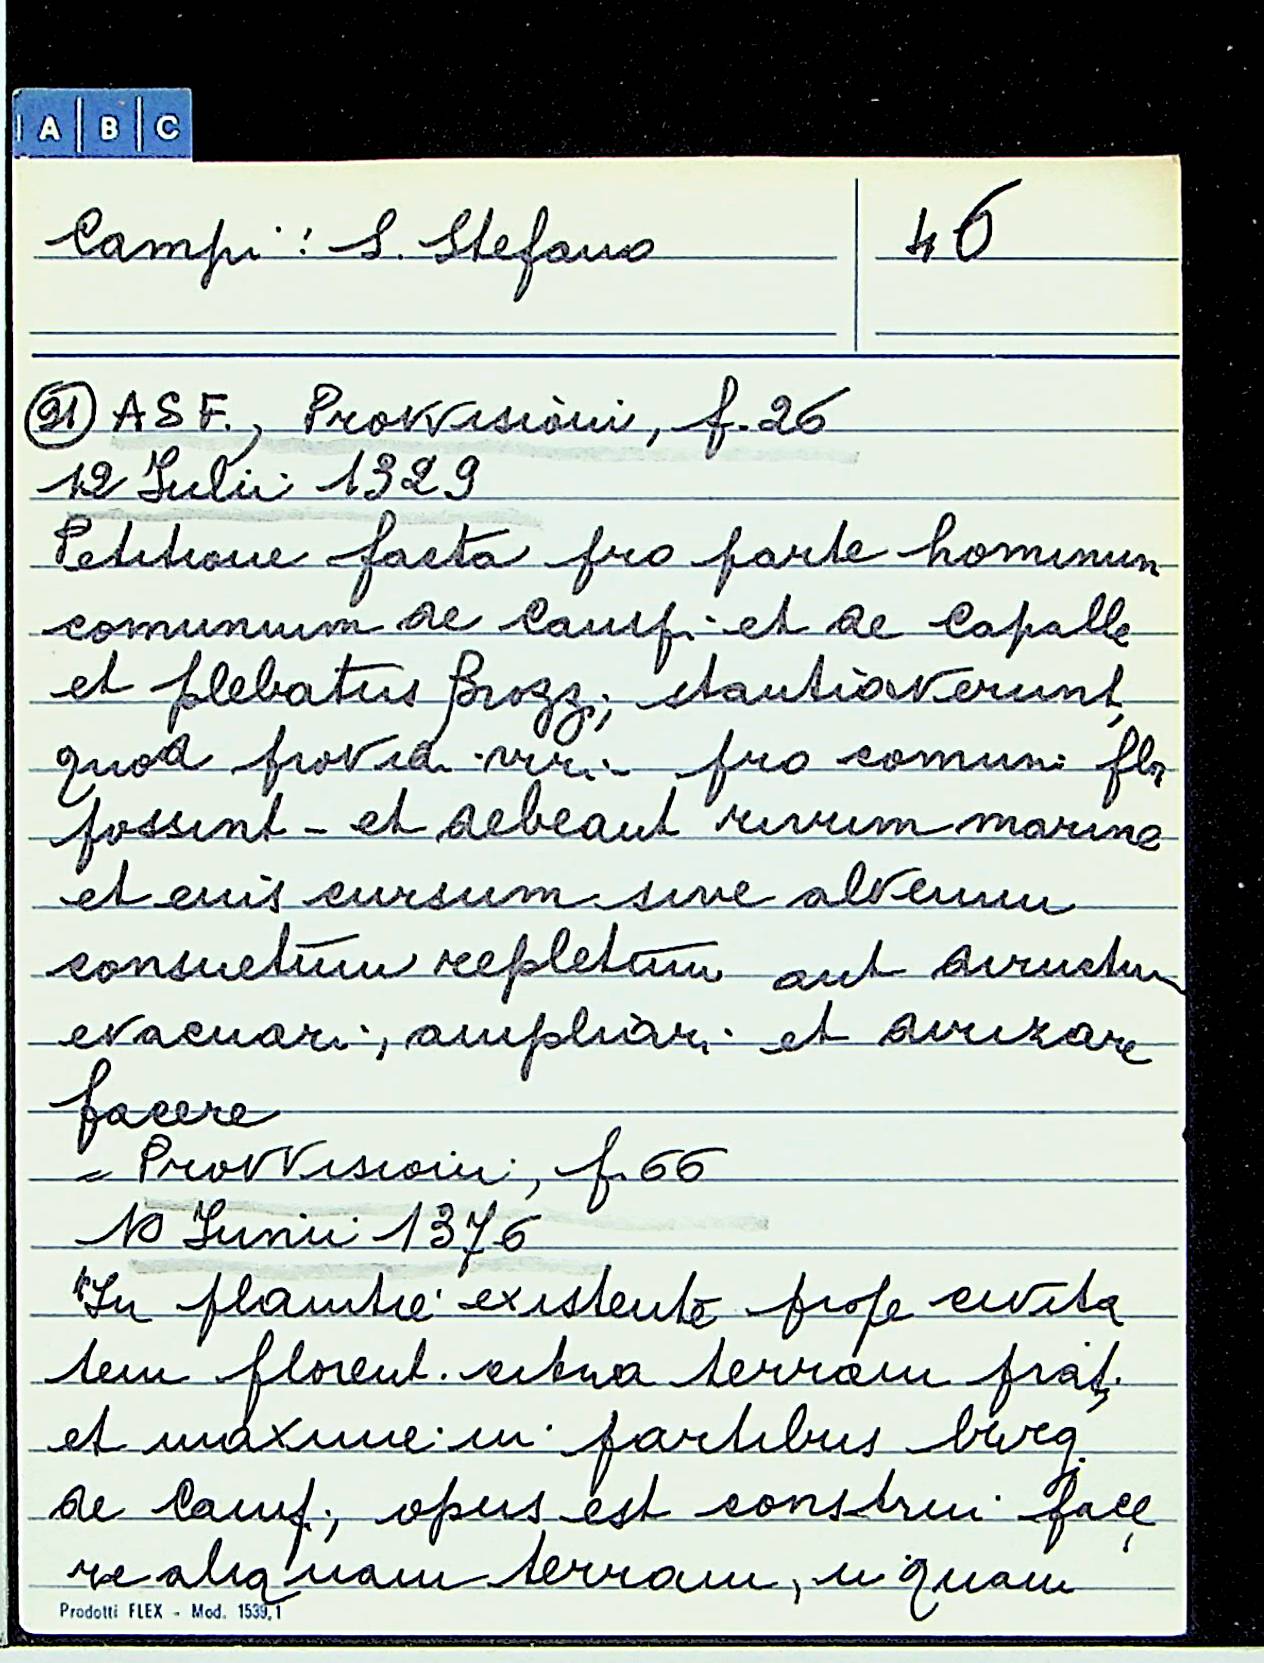 A B C
Campi: S. Stefano 46
21 ASF., Provvisioni, f. 26
12 Iulii 1329
Petitione facta pro parte hominun
comunium de Campi et de Capalle
et plebatus Brozzi, stantiaverunt,
quod provid. viri pro comuni flor
possint - et debeant rivum marine
et euis cursum sive alveum
consuetum repletum aut diructum
evacuari, ampliari et dirizare
facere
= Provvisioni, f. 66
10 Iunii 1376
"In planitie existente prope civita
tem florent. citra terram prat.
et maxime in partibus burg.
de Campi, opus est construi face
re aliquam terram, in quam
Prodotti FLEX - Mod. 1539,1